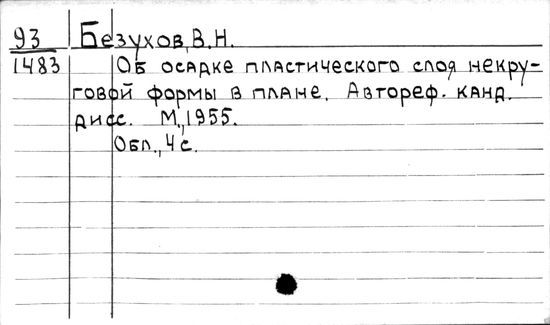 93 Безухов, В.Н.
1483 Об осадке пластического слоя некру-
говой формы в плане. Автореф. канд.
дисс. М., 1955.
Обл., 4 с.